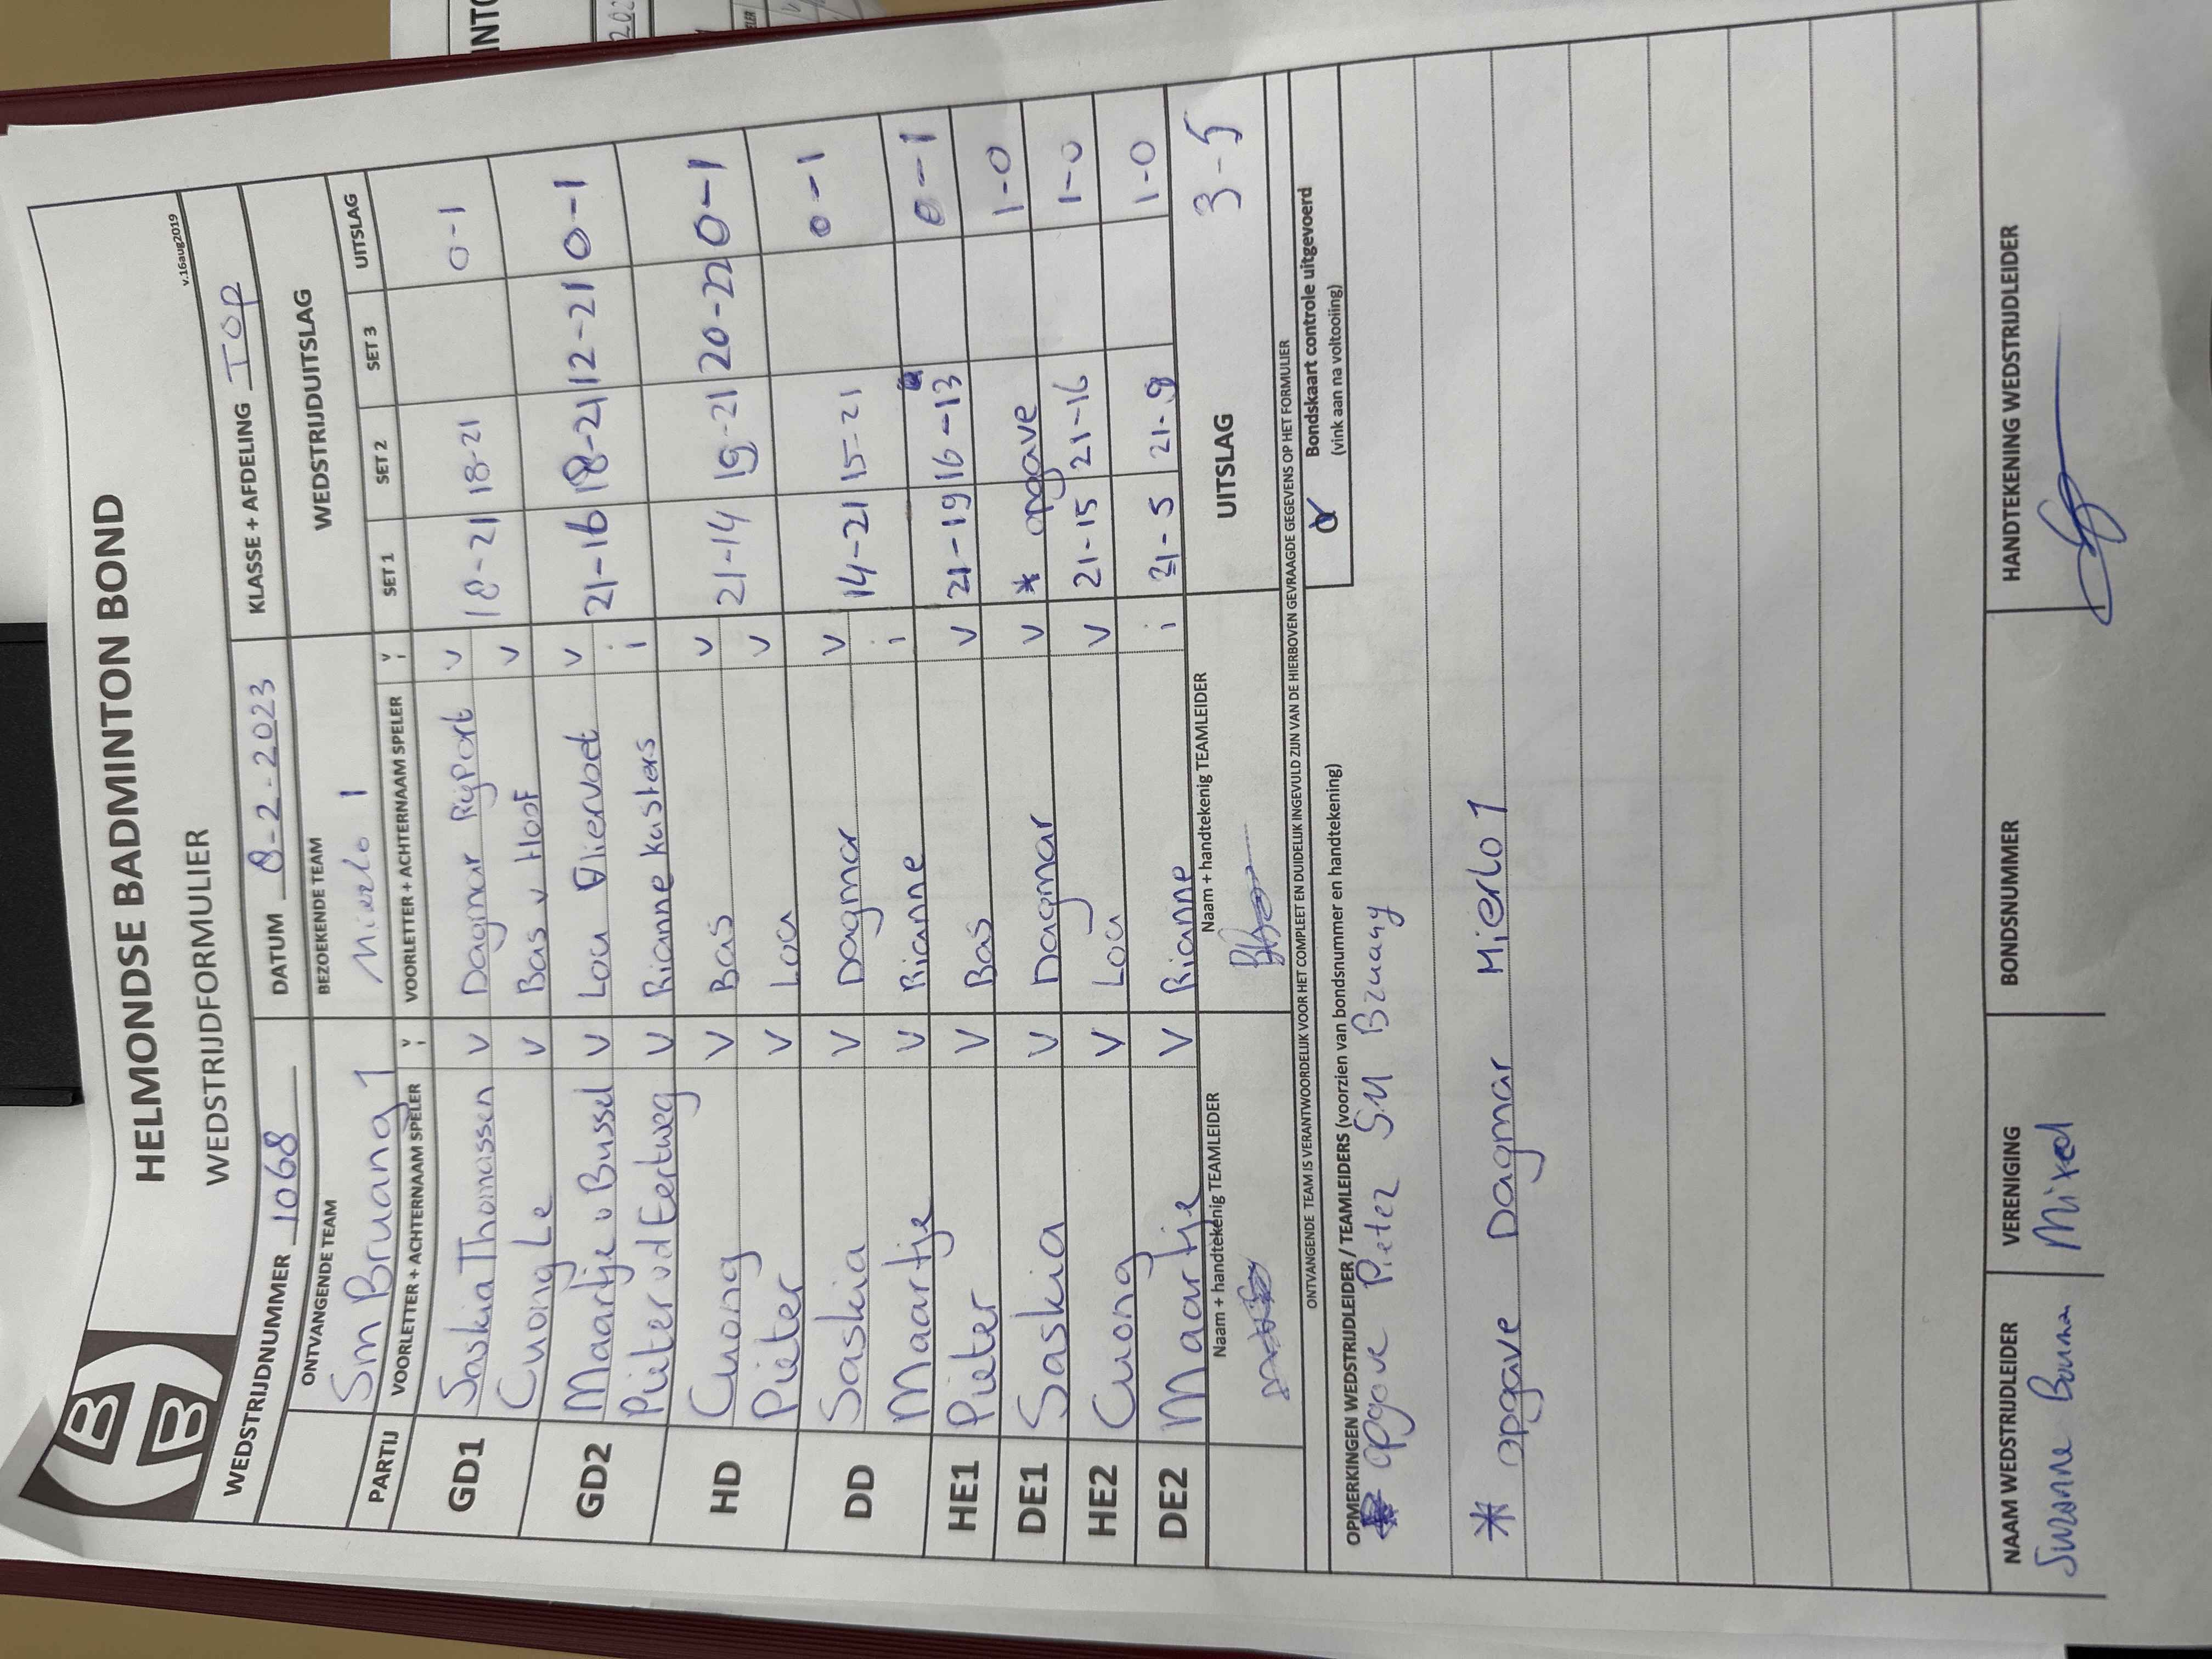 HELMONDSE BADMINTON BOND
WEDSTRIJDFORMULIER
v.16aug2019
WEDSTRIJDNUMMER 1068 DATUM 8-2-2023 KLASSE + AFDELING TOP
ONTVANGENDE TEAM BEZOEKENDE TEAM WEDSTRIJDUITSLAG
Sm Bruang 1 Mierlo 1
PARTIJ VOORLETTER + ACHTERNAAM SPELER V I VOORLETTER + ACHTERNAAM SPELER V I SET 1 SET 2 SET 3 UITSLAG
GD1 Saskia Thomassen V Dagmar Rijport V 18-21 18-21 0-1
Cuong Le V Bas v Hoof V
GD2 Maartje v Bussel V Loa Oliervoet V 21-16 18-21 12-21 0-1
Pieter vd Eertweg V Rianne kusters i
HD Cuong V Bas V 21-14 19-21 20-22 0-1
Pieter V Loa V
DD Saskia V Dagmar V 14-21 15-21 0-1
Maartje V Rianne i
HE1 Pieter V Bas V 21-19 16-13 0-1
DE1 Saskia V Dagmar V * opgave 1-0
HE2 Cuong V Lou V 21-15 21-16 1-0
DE2 Maartje V Rianne i 21-5 21-9 1-0
Naam + handtekenig TEAMLEIDER Naam + handtekenig TEAMLEIDER UITSLAG 3-5
ONTVANGENDE TEAM IS VERANTWOORDELIJK VOOR HET COMPLEET EN DUIDELIJK INGEVULD ZIJN VAN DE HIERBOVEN GEVRAAGDE GEGEVENS OP HET FORMULIER
OPMERKINGEN WEDSTRIJDLEIDER / TEAMLEIDERS (voorzien van bondsnummer en handtekening)
Bondskaart controle uitgevoerd
(vink aan na voltooiing)
opgave Pieter SM Bruang
* opgave Dagmar Mierlo 1
NAAM WEDSTRIJDLEIDER VERENIGING BONDSNUMMER HANDTEKENING WEDSTRIJDLEIDER
Suzanne Mixed